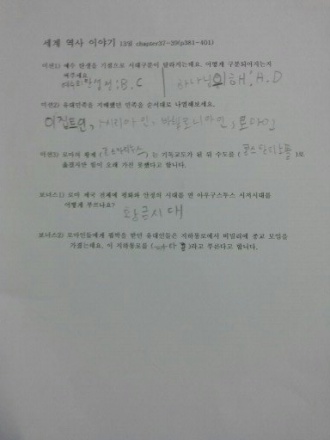 세계 역사 이야기 (2권 chapter37-39(p381-401)
미션1) 예수 탄생을 기점으로 시대구분이 달라지는데요. 어떻게 구분되어지는지
써주세요.
탄생전:B.C | 하나님의해:A.D
미션2) 유대민족을 지배했던 민족을 순서대로 나열해보세요.
이집트인, 앗시리아인, 바빌로니아인, 로마인
미션3) 로마의 황제 (콘스탄티누스)는 기독교도가 된 뒤 수도를 (콘스탄티노플)로
옮겼지만 힘이 오래 가진 못했다고합니다.
보너스1) 로마 제국 전체에 평화와 안정의 시대를 연 아우구스투스 시저시대를
어떻게 부르나요?
황금시대
보너스2) 로마인들에게 핍박을 받던 유대인들은 지하통로에서 비밀리에 종교 모임을
가졌는데요. 이 지하통로를 ( )라고 부른다고 합니다.